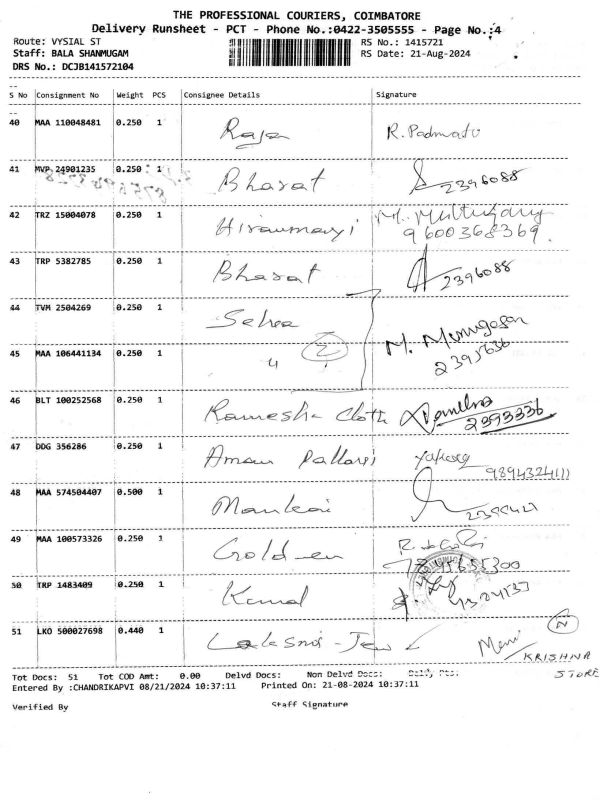 THE PROFESSIONAL COURIERS, COIMBATORE
Delivery Runsheet - PCT - Phone No.:0422-3505555 - Page No.:4
Route: VYSIAL ST
RS No.: 1415721
Staff: BALA SHANMUGAM
RS Date: 21-Aug-2024
DRS No.: DCJB141572104
--
S No Consignment No Weight PCS Consignee Details Signature
--
40 MAA 110048481 0.250 1 Raja R. Padmavati
41 MVP 24901235 0.250 1 Bharat 2396088
42 TRZ 15004078 0.250 1 9600368369.
43 TRP 5382785 0.250 1 Bharat 2396088
44 TVM 2504269 0.250 1 M. Murugesan
45 MAA 106441134 0.250 1 2 2395636
46 BLT 100252568 0.250 1 Ramesha Cloth 2393336
47 DDG 356286 0.250 1 Aman Pallavi
9894324111
48 MAA 574504407 0.500 1
49 MAA 100573326 0.250 1 Golden
50 TRP 1483409 0.250 1 Kamal
51 LKO 500027698 0.440 1 N
KRISHNA
STORE
Tot Docs: 51 Tot COD Amt: 0.00 Delvd Docs: Non Delvd Docs:
Entered By :CHANDRIKAPVI 08/21/2024 10:37:11 Printed On: 21-08-2024 10:37:11
Verified By Staff Signature